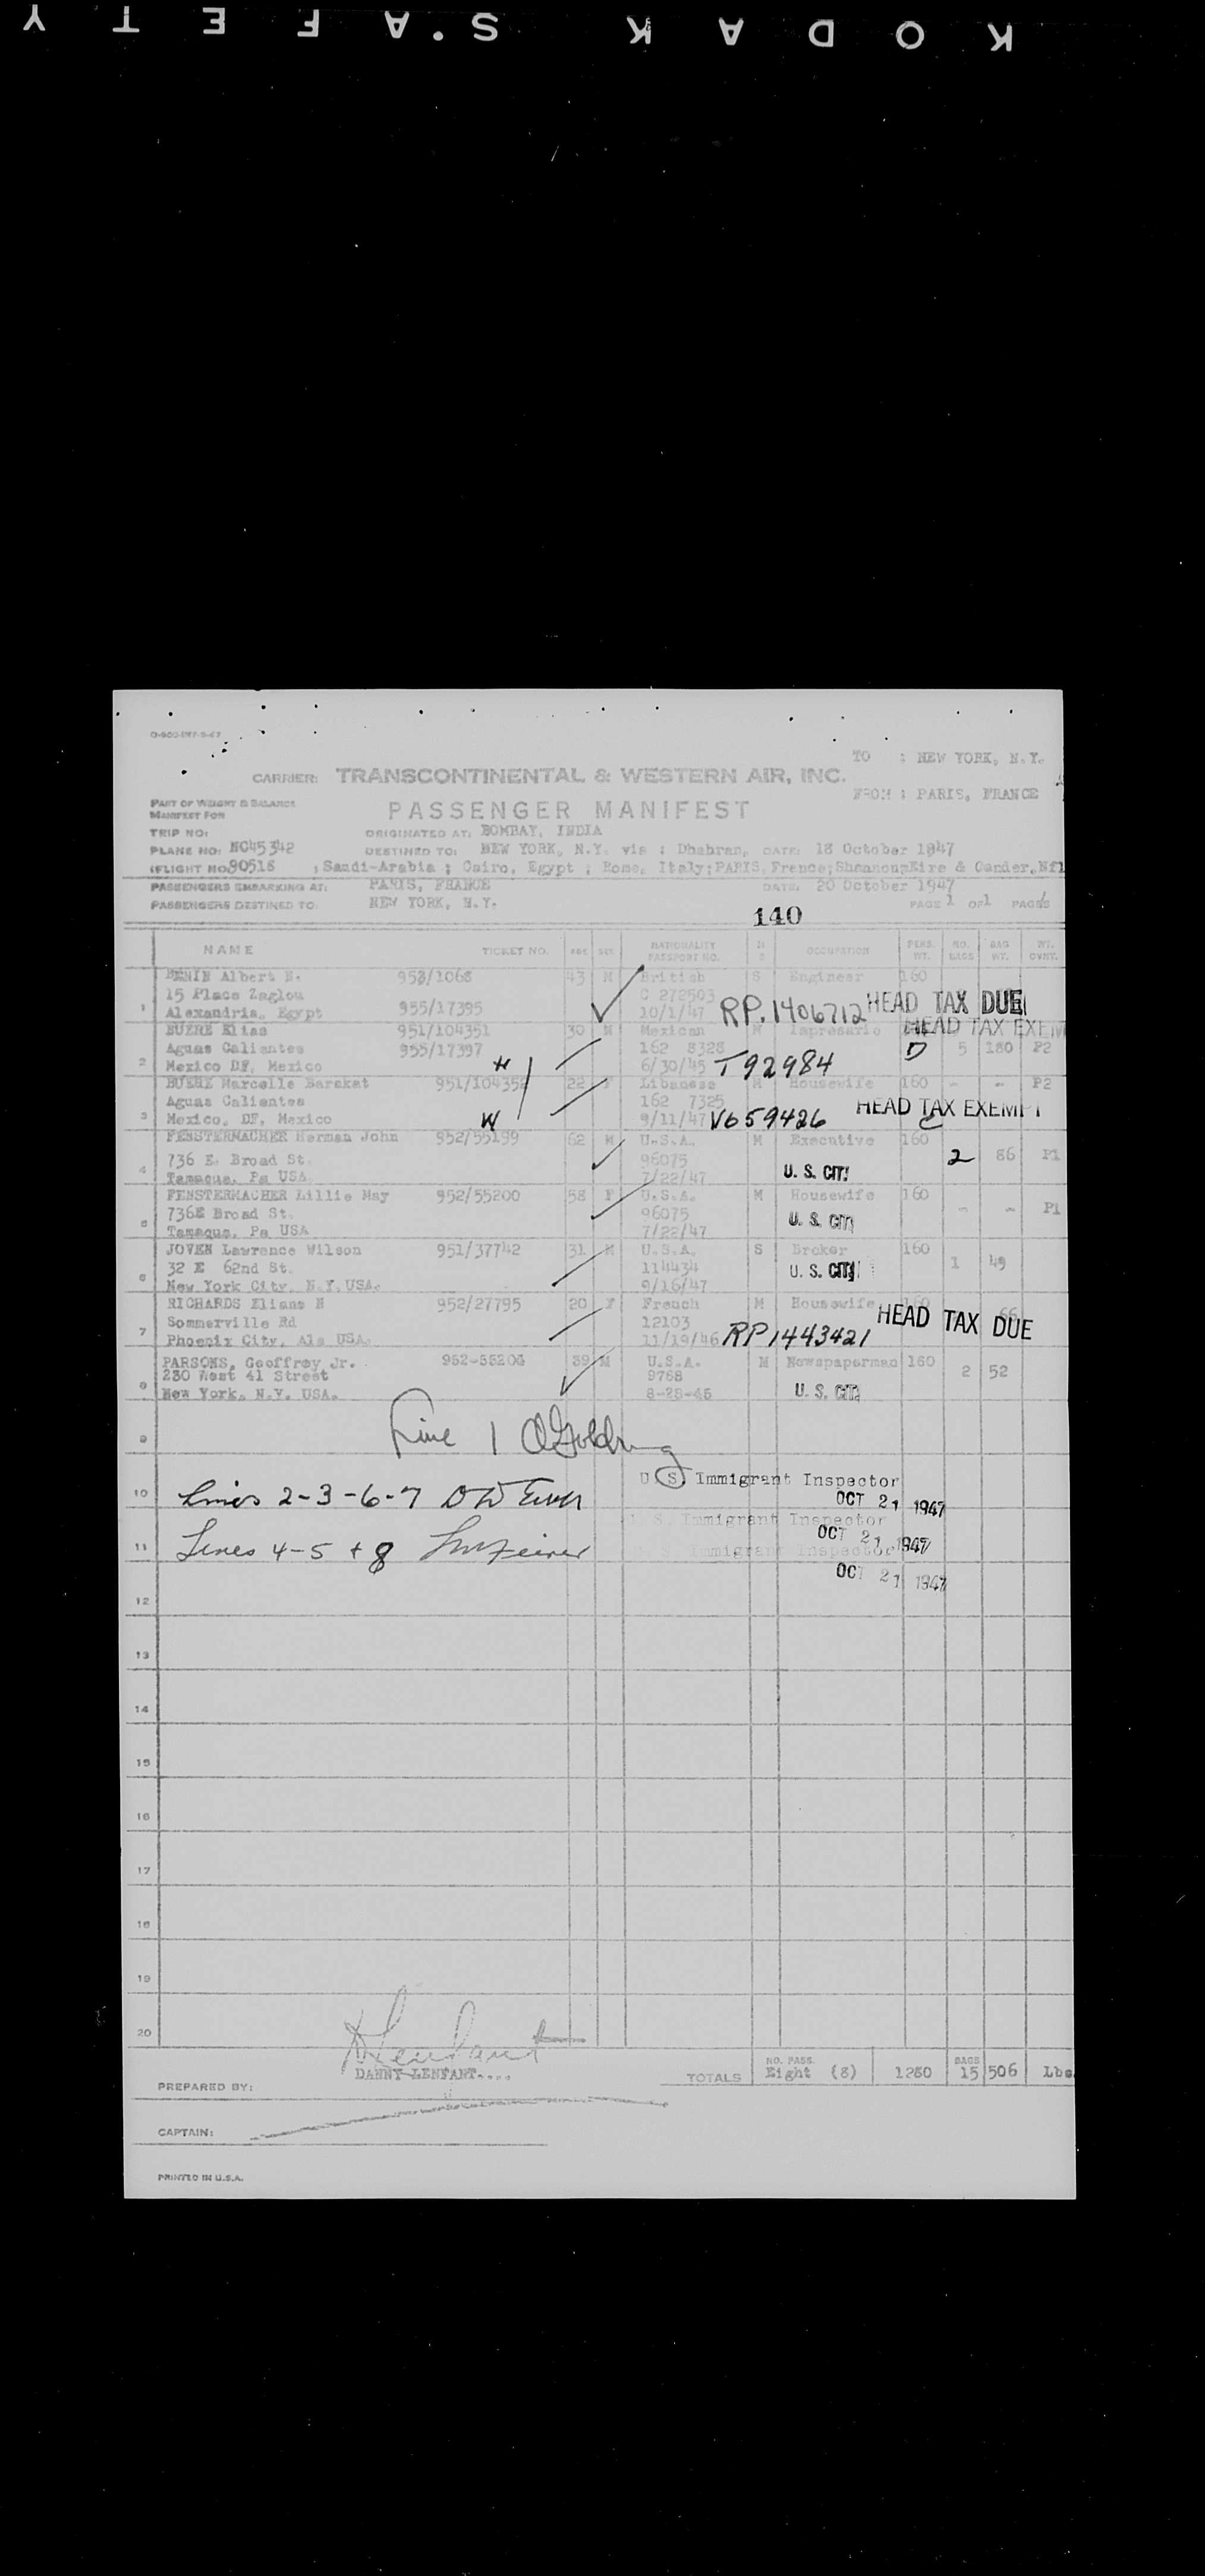 KODAK S'AFETY
O-900-INT-5-47
TO : NEW YORK, N.Y.
CARRIER: TRANSCONTINENTAL & WESTERN AIR, INC.
FROM : PARIS, FRANCE
PART OF WEIGHT & BALANCE
MANIFEST FOR
PASSENGER MANIFEST
TRIP NO: ORIGINATED AT: BOMBAY, INDIA
PLANE NO: NC45342 DESTINED TO: NEW YORK, N.Y. via : Dhahran, DATE: 18 October 1947
FLIGHT NO 90516 ; Saudi-Arabia ; Cairo, Egypt ; Rome, Italy;PARIS, France;Shannon,Eire & Gander,Nfl
PASSENGERS EMBARKING AT: PARIS, FRANCE DATE: 20 October 1947
PASSENGERS DESTINED TO: NEW YORK, N.Y. PAGE 1 OF 1 PAGES
140
NAME TICKET NO. AGE SEX NATIONALITY PASSPORT NO. M S OCCUPATION PERS. WT. NO. BAGS BAG WT. WT. CVHT.
BENIN Albert B. 958/1068 43 M British S Engineer 160
15 Place Zaglou C 272503
1 Alexandria, Egypt 955/17395 10/1/47 RP.1406712 HEAD TAX DUE
BUERE Elias 951/104351 30 M Mexican M Impresario HEAD TAX EXEM
Aguas Calientes 955/17397 162 8328 D 5 180 P2
2 Mexico DF, Mexico H 6/30/45 T92984
BUERE Marcelle Barekat 951/104352 22 F Libanese M Housewife 160 - - P2
Aguas Calientes 162 7325 HEAD TAX EXEMPT
3 Mexico, DF, Mexico W 9/11/47 V659426 C
FENSTERMACHER Herman John 952/55199 62 M U.S.A. M Executive 160
736 E. Broad St. 96075 2 86 P1
4 Tamaqua, Pa USA 7/22/47 U. S. CIT.
FENSTERMACHER Lillie May 952/55200 58 F U.S.A. M Housewife 160
736E Broad St. 96075 - - P1
5 Tamaqua, Pa USA 7/22/47 U. S. CIT.
JOVEN Lawrence Wilson 951/37742 31 M U.S.A. S Broker 160
32 E 62nd St. 114434 1 49
6 New York City, N.Y.USA. 9/16/47 U. S. CIT.
RICHARDS Eliane N 952/27795 20 F French M Housewife 160
Sommerville Rd 12103 66 HEAD TAX DUE
7 Phoenix City, Ala USA. 11/19/46 RP1443421
PARSONS, Geoffrey Jr. 952-55203 39 M U.S.A. M Newspaperman 160
230 West 41 Street 9768 2 52
8 New York, N.Y. USA. 8-28-45 U. S. CIT.
Line 1
9
U. S. Immigrant Inspector
10 Lines 2-3-6-7 OCT 21 1947
U. S. Immigrant Inspector
OCT 21 1947
11 Lines 4-5 + 8 Immigrant Inspector
OCT 21 1947
12
13
14
15
16
17
18
19
20
DANNY LENFANT....
PREPARED BY:
TOTALS NO. PASS. Eight (8) 1280 BAGS 15 506 Lbs
CAPTAIN:
PRINTED IN U.S.A.